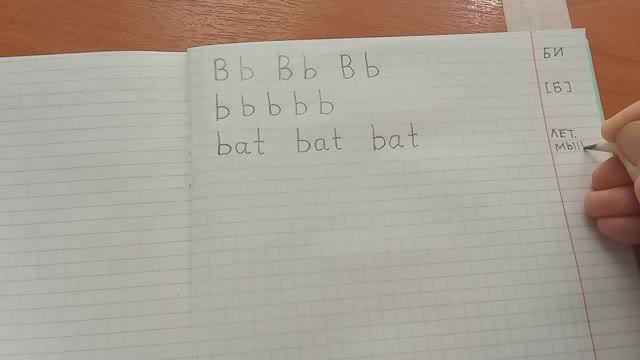 Bb Bb Bb
БИ
b b b b b
[Б]
bat bat bat
ЛЕТ.
МЫ